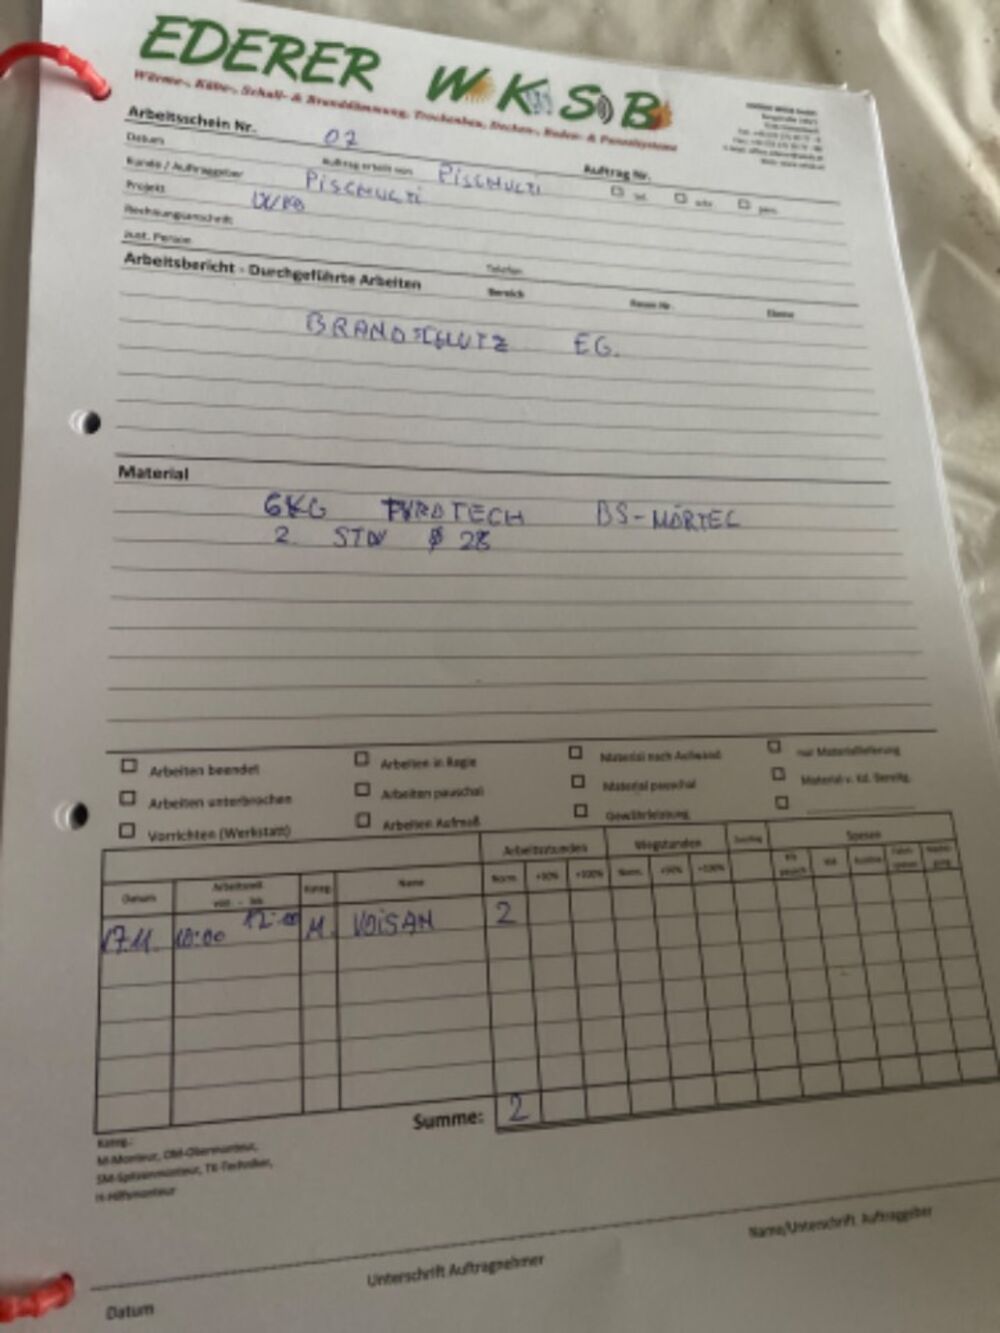 EDERER WKSB
Wärme-, Kälte-, Schall- & Branddämmung, Trockenbau, Decken-, Boden- & Paneelsysteme
Arbeitsschein Nr. 07
Auftrag Nr.
Datum
Auftrag erteilt von PISCHULTI
tel. schr. pers.
Kunde / Auftraggeber PISCHULTI
Projekt
Rechnungsanschrift
Zust. Person
Telefon
Arbeitsbericht - Durchgeführte Arbeiten Bereich Raum Nr. Ebene
BRANDSCHUTZ EG.
Material
6KG PYROTECH BS-MÖRTEL
2 STDV Ø 28
Arbeiten beendet Arbeiten in Regie Material nach Aufwand nur Materiallieferung
Arbeiten unterbrochen Arbeiten pauschal Material pauschal Material v. Kd. Bereitg.
Vorrichten (Werkstatt) Arbeiten Aufmaß Gewährleistung
Arbeitsstunden Wegstunden Spesen
Datum Arbeitszeit von - bis Kateg. Name Norm. +50% +100% Norm. +50% +100%
17.11. 10:00 12:00 M. VOISAN 2
Summe: 2
Kateg.:
M-Monteur, OM-Obermonteur,
SM-Spitzenmonteur, TK-Techniker,
H-Hilfsmonteur
Datum Unterschrift Auftragnehmer Name/Unterschrift Auftraggeber